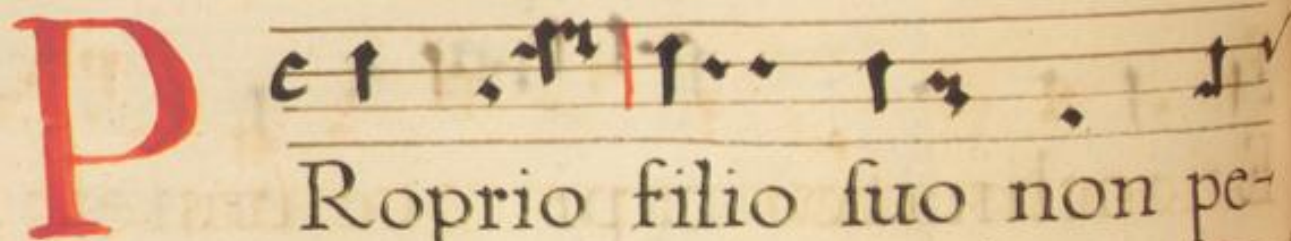 PRoprio filio ſuo non pe-